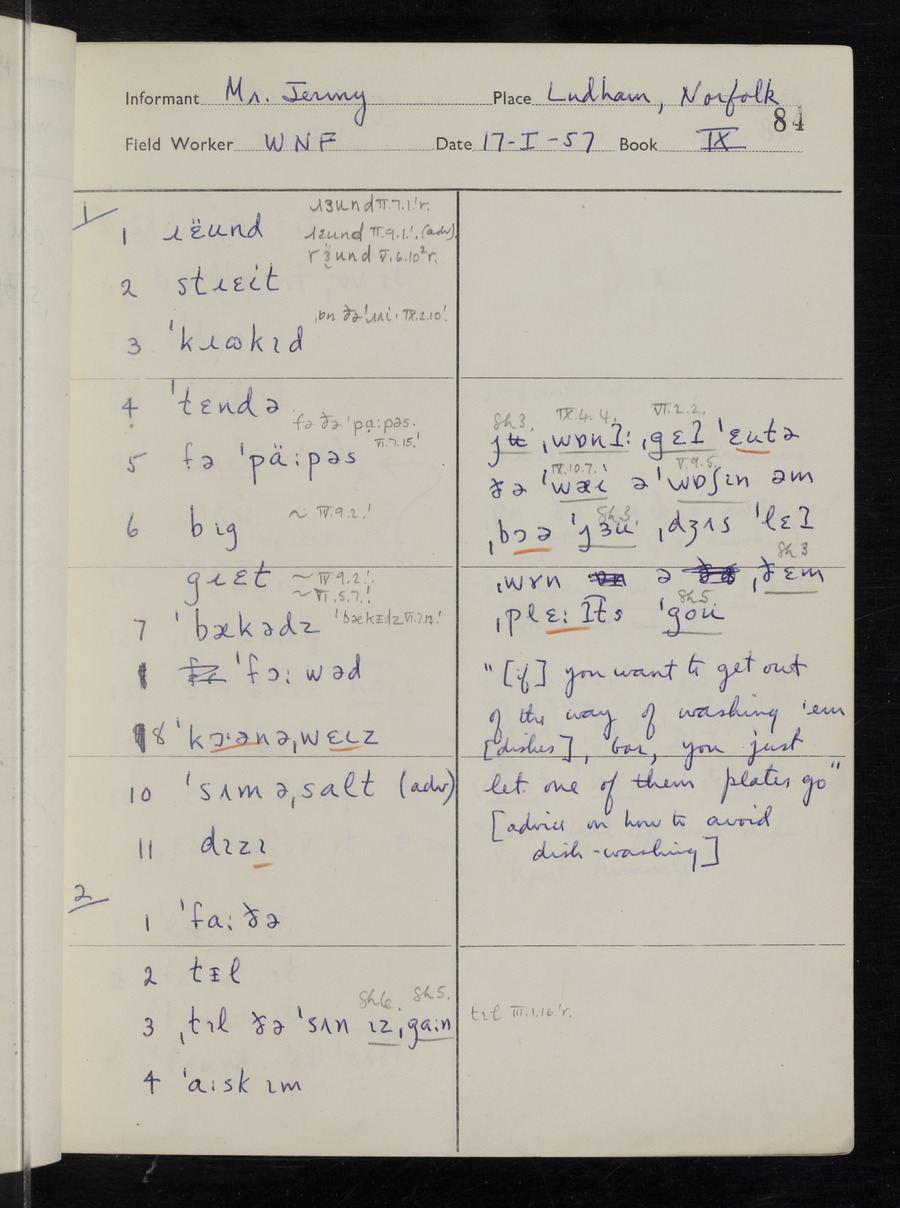 Informant Mr. Jermy Place Ludham, Norfolk
84
Field Worker W N F Date 17-I-57 Book IX
1
1 ɹɛ̈und ɹɜund II.7.1!r.
ɹɛund II.9.1!. (adv).
V.6.10²r.
2 stɹɛit
3 ˈkɹɷkɪd IX.2.10!
4 ˈtɛndə
5 fə ˈpä:pəs fə ðə ˈpa:pəs. VI.7.15!
6 bɪg ~ IV.9.2!
gɹɛt ~ IV.9.2!.
~ VI.5.7!
7 ˈbækədz ˈbækɪdz VI.7.13!
ˈfɔ:wəd
8 ˈkɔ·ənəˌwɛɩz
10 ˈsʌmə, salt (adv)
11 dɪzɪ
2
1 ˈfa:ðə
2 tɪl
3 ˌtɪl ðə ˈsʌn ɪz ˌga:n Sh6. Sh5.
4 ˈa:sk ɪm
Sh3. IX.4.4. VI.2.2.
jʉ ˌwɒnɪ: ˌgɛɪ ˈɛutə
IX.10.7! V.9.5.
ðə ˈwæi ə ˈwɒʃɪn əm
Sh3.
ˌbɔə ˈjɜʉ ˌdʒɪs ˈlɛɪ
Sh3
ˌwɤn ə ˌðɛm
Sh5.
ˌplɛ:ɪts ˈgou
"[if] you want to get out
of the way of washing 'em
[dishes], bor, you just
let one of them plates go"
[advice on how to avoid
dish-washing]
tɪl III.1.16.!r.